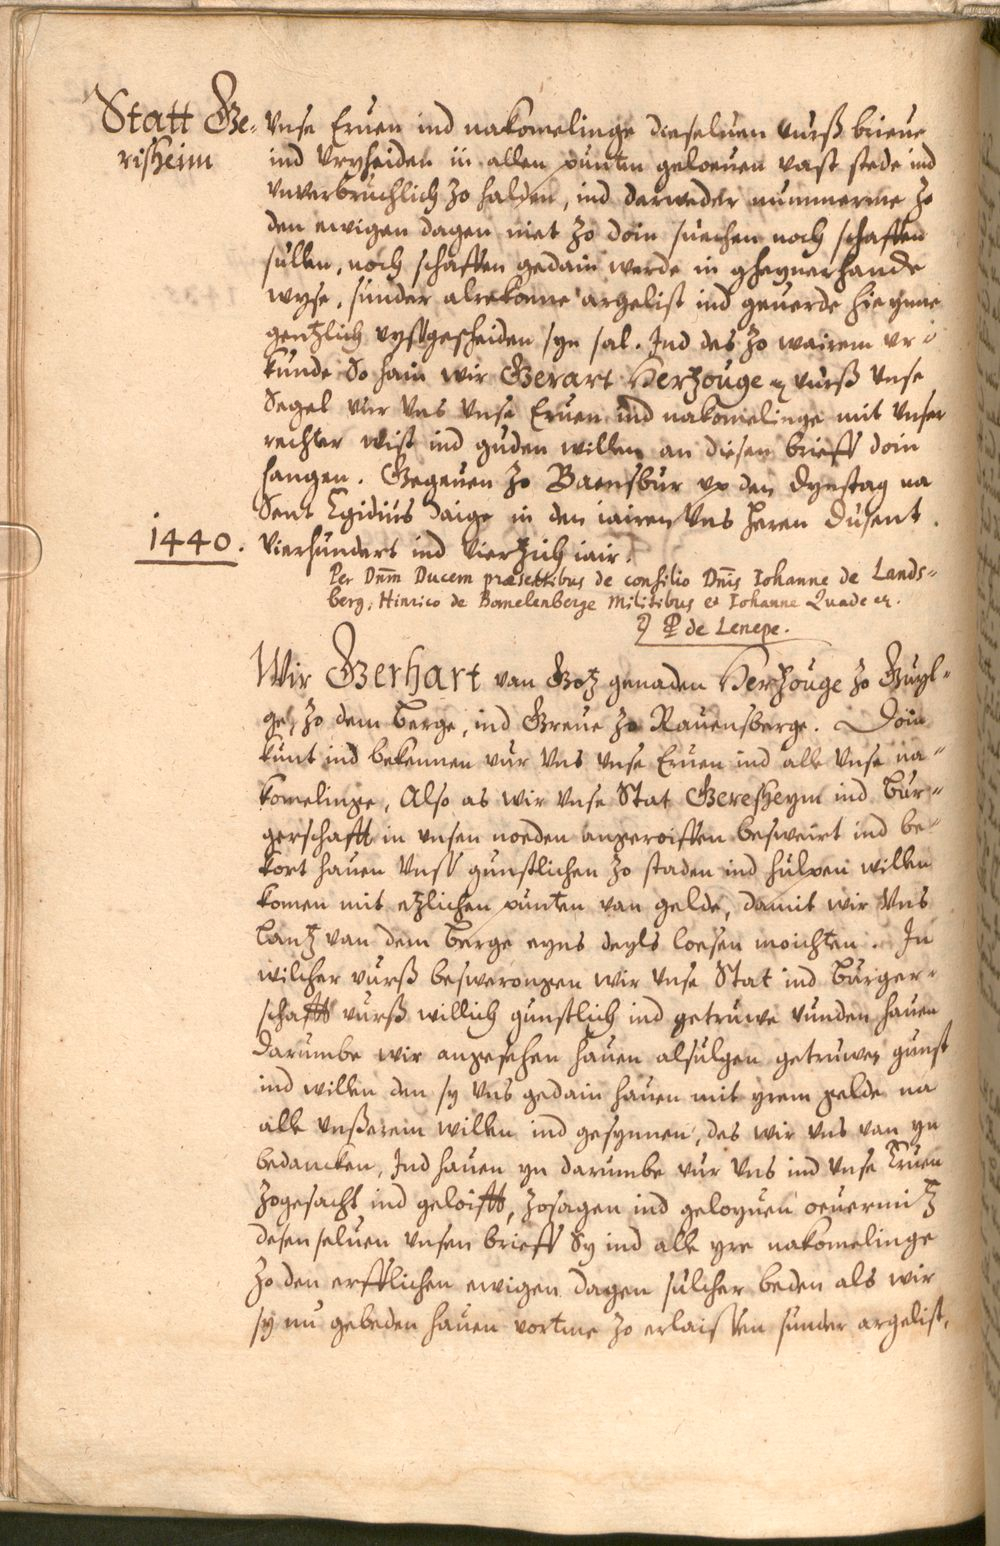 Statt Ge-
risheim
Vnse Eruen ind nakomelinge dieseluen vurß brieue
ind Vryheiden in allen punten geloeuen vast stede ind
vnverbruchlich zo halden, ind darweder nummerme zo
den ewigen dagen niet zo doin suechen noch schaffen
sullen, noch schaffen gedain werde in gheynerhande
wyse, sunder alrekonne argelist ind geuerde hie ynne
gentzlich vyßgescheiden syn sal. Ind des zo wairem vr-
kunde So hain wir Gerart Hertzouge vurß vnse
Segel vur vns vnse Eruen ind nakomelinge mit vnser
rechter wist ind guden willen an diesen brieff doin
hangen. Gegeuen zo Baensbur vp den dynstag na
Sent Egidius daige in den iairen vns heren dusent
1440.
vierhundert ind viertzich iair.
Per Dnm Ducem præsentibus de consilio Dnis Iohanne de Lands-
berg, Hinrico de Bomelenberge Militibus et Iohanne Quade
de Lenepe.
Wir Gerhart van Gotz genaden Hertzouge zo Guyl-
ge, zo dem Berge, ind Greue zo Rauensberge. Doin
kunt ind bekennen vur vns vnse Eruen ind alle vnse na-
komelinge, Also as wir vnse Stat Geresheym ind Bur-
gerschafft in vnsen noeden angeroiffen besweirt ind be-
kort hauen vnß gunstlichen zo staden ind hulpen willen
komen mit etzlichen punten van gelde, damit wir vns
Lantz van dem Berge eyns deyls loesen moichten. In
wilcher vurß beswerongen wir vnse Stat ind Burger-
schafft vurß willich gunstlich ind getruwe vunden hauen
Darumbe wir angesehen hauen alsulgen getruwen gunst
ind willen den sy vns gedain hauen mit yrem gelde na
alle vnßerem willen ind gesynnen, des wir vns van yn
bedancken, Ind hauen yn darumbe vur vns ind vnse Eruen
zogesacht ind geloifft, zosagen ind geloyuen ouermitz
desen seluen vnsen brieff Sy ind alle yre nakomelinge
zo den erfflichen ewigen dagen sulcher beden als wir
sy nu gebeden hauen vortme zo erlaissen sunder argelist,